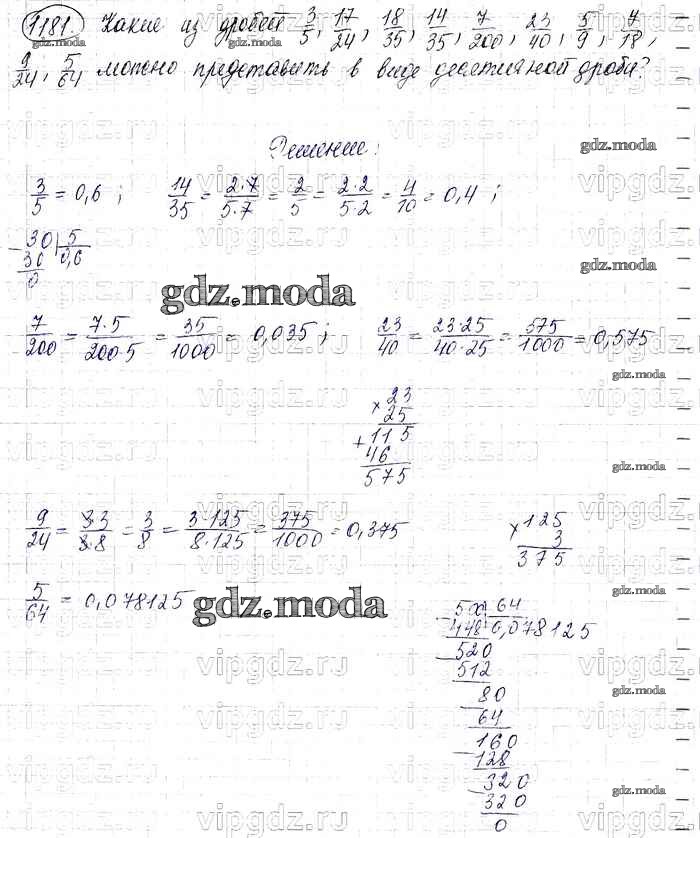 1181. Какие из дробей 3/5, 17/24, 18/35, 14/35, 7/200, 23/40, 5/9, 7/18,
9/24, 5/64 можно представить в виде десятичной дроби?
gdz.moda
Решение:
3/5 = 0,6 ; 14/35 = 2·7/5·7 = 2/5 = 2·2/5·2 = 4/10 = 0,4 ;
30 | 5
30 0,6
0
gdz.moda
gdz.moda
7/200 = 7·5/200·5 = 35/1000 = 0,035 ; 23/40 = 23·25/40·25 = 575/1000 = 0,575
gdz.moda
× 23
25
+ 115
46
575
gdz.moda
9/24 = 3·3/3·8 = 3/8 = 3·125/8·125 = 375/1000 = 0,375
× 125
3
375
gdz.moda
5/64 = 0,078125
gdz.moda
500 | 64
448 0,078125
520
512
80
64
160
128
320
320
0
gdz.moda
gdz.moda
vipgdz.ru